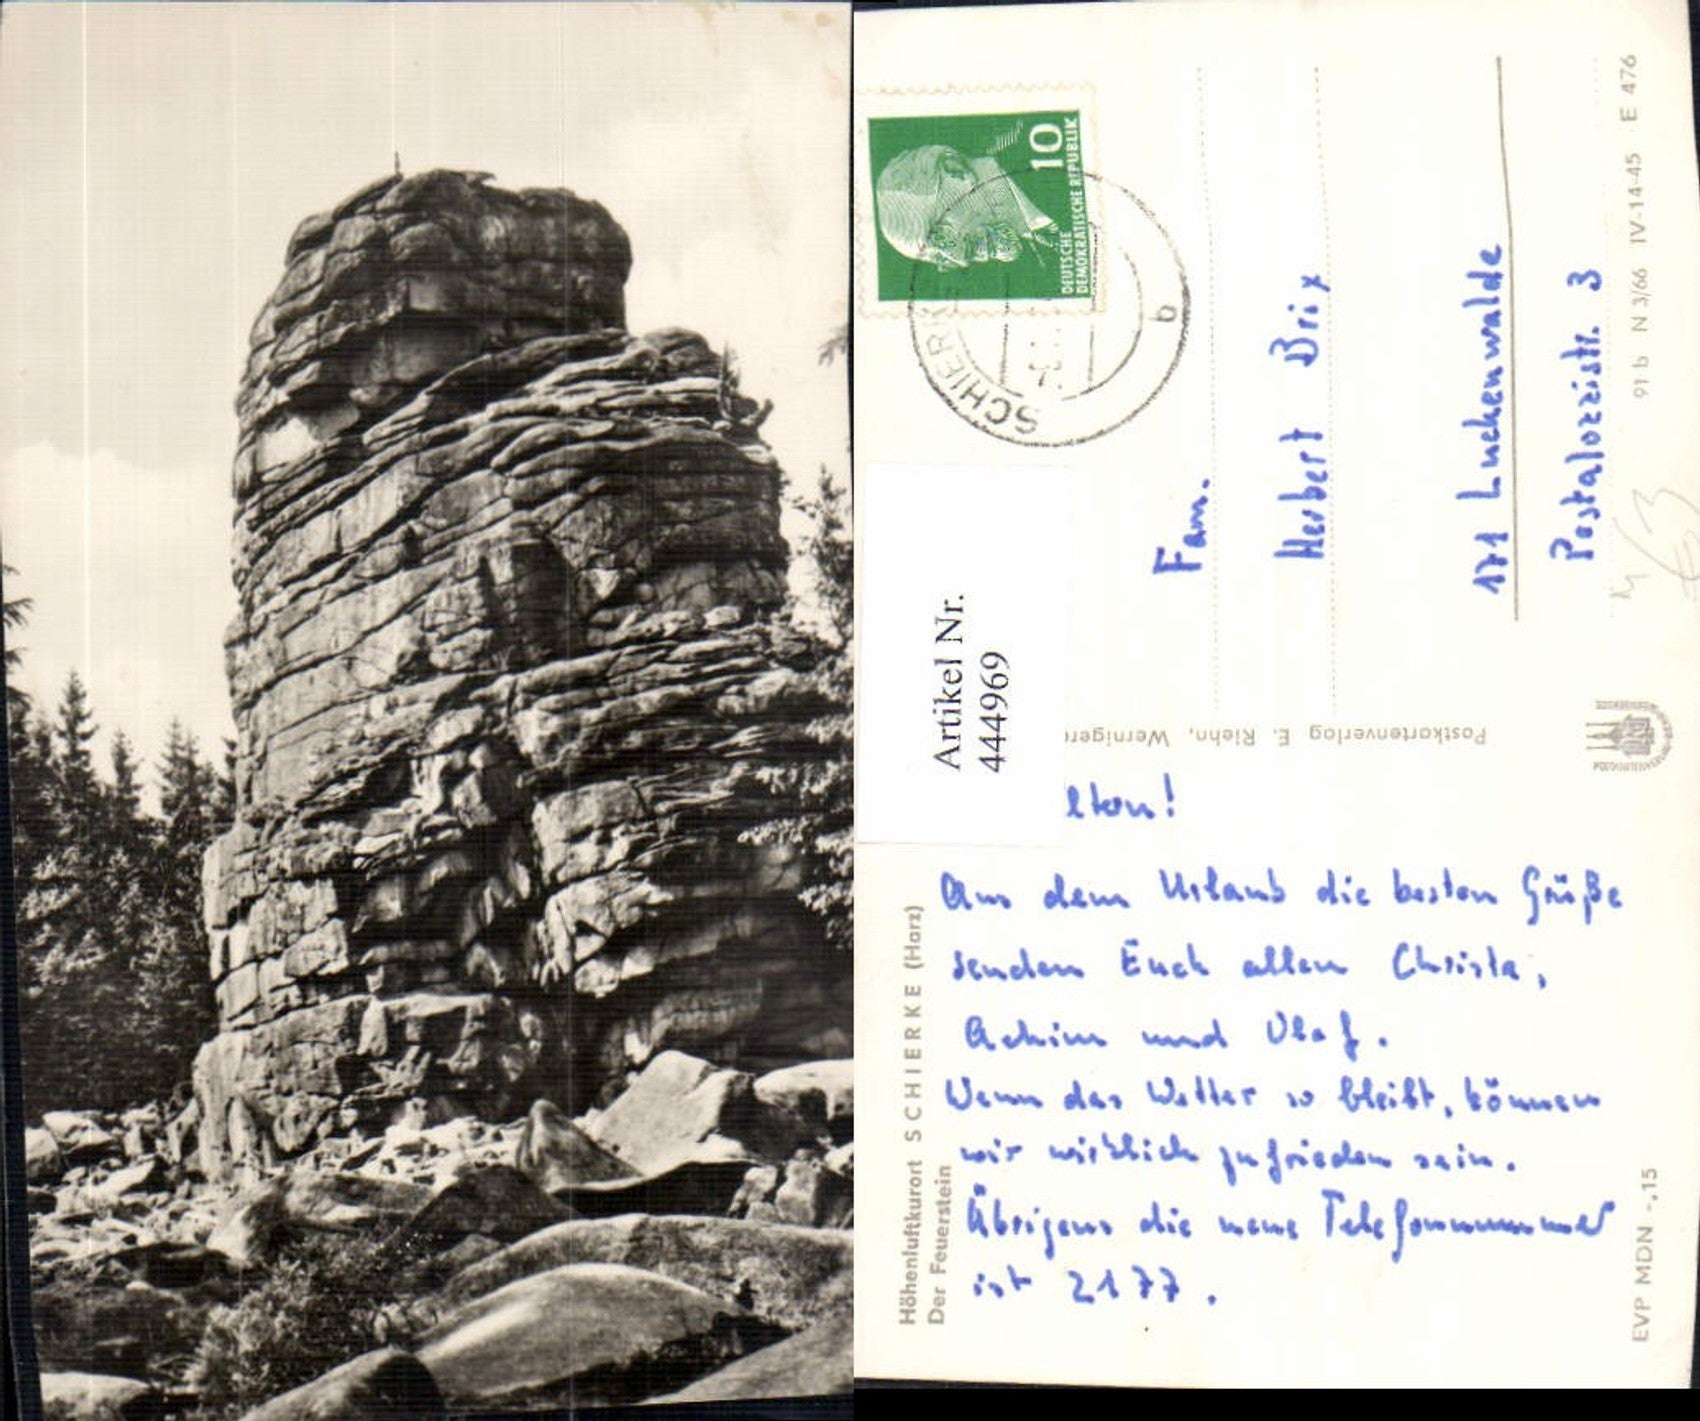 10
DEUTSCHE
DEMOKRATISCHE REPUBLIK
SCHIERKE
b
Artikel Nr.
444969
Fam.
Herbert Brix
171 Luckenwalde
Pestalozzistr. 3
91 b N 3/66 IV-14-45 E 476
Postkartenverlag E. Riehn, Werniger
ltern!
Aus dem Urlaub die besten Grüße
senden Euch allen Christa,
Achim und Olaf.
Wenn das Wetter so bleibt, können
wir wirklich zufrieden sein.
Übrigens die neue Telefonnummer
ist 2177.
Höhenluftkurort SCHIERKE (Harz)
Der Feuerstein
EVP MDN -,15